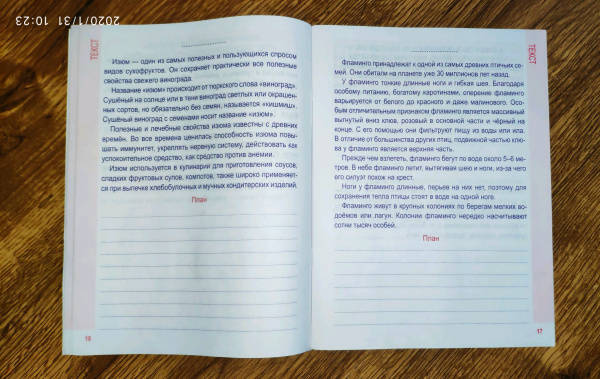 2020/1/31 10:23
ТЕКСТ
Изюм — один из самых полезных и пользующихся спросом
видов сухофруктов. Он сохраняет практически все полезные
свойства свежего винограда.
Название «изюм» происходит от тюркского слова «виноград».
Сушёный на солнце или в тени виноград светлых или окрашен-
ных сортов, но обязательно без семян, называется «кишмиш».
Сушёный виноград с семенами носит название «изюм».
Полезные и лечебные свойства изюма известны с древних
времён. Во все времена ценилась способность изюма повы-
шать иммунитет, укреплять нервную систему, действовать как
успокоительное средство, как средство против анемии.
Изюм используется в кулинарии для приготовления соусов,
сладких фруктовых супов, компотов, также широко применяет-
ся при выпечке хлебобулочных и мучных кондитерских изделий.
План
16
ТЕКСТ
Фламинго принадлежит к одной из самых древних птичьих се-
мей. Они обитали на планете уже 30 миллионов лет назад.
У фламинго тонкие длинные ноги и гибкая шея. Благодаря
особому питанию, богатому каротинами, оперение фламинго
варьируется от белого до красного и даже малинового. Осо-
бым отличительным признаком фламинго является массивный
выгнутый вниз клюв, розовый в основной части и чёрный на
конце. С его помощью они фильтруют пищу из воды или ила.
В отличие от большинства других птиц, подвижной частью клю-
ва у фламинго является верхняя часть.
Прежде чем взлететь, фламинго бегут по воде около 5–6 ме-
тров. В небе фламинго летит, вытягивая шею и ноги, из-за чего
его силуэт похож на крест.
Ноги у фламинго длинные, перьев на них нет, поэтому для
сохранения тепла птицы стоят в воде на одной ноге.
Фламинго живут в крупных колониях по берегам мелких во-
доёмов или лагун. Колонии фламинго нередко насчитывают
сотни тысяч особей.
План
17